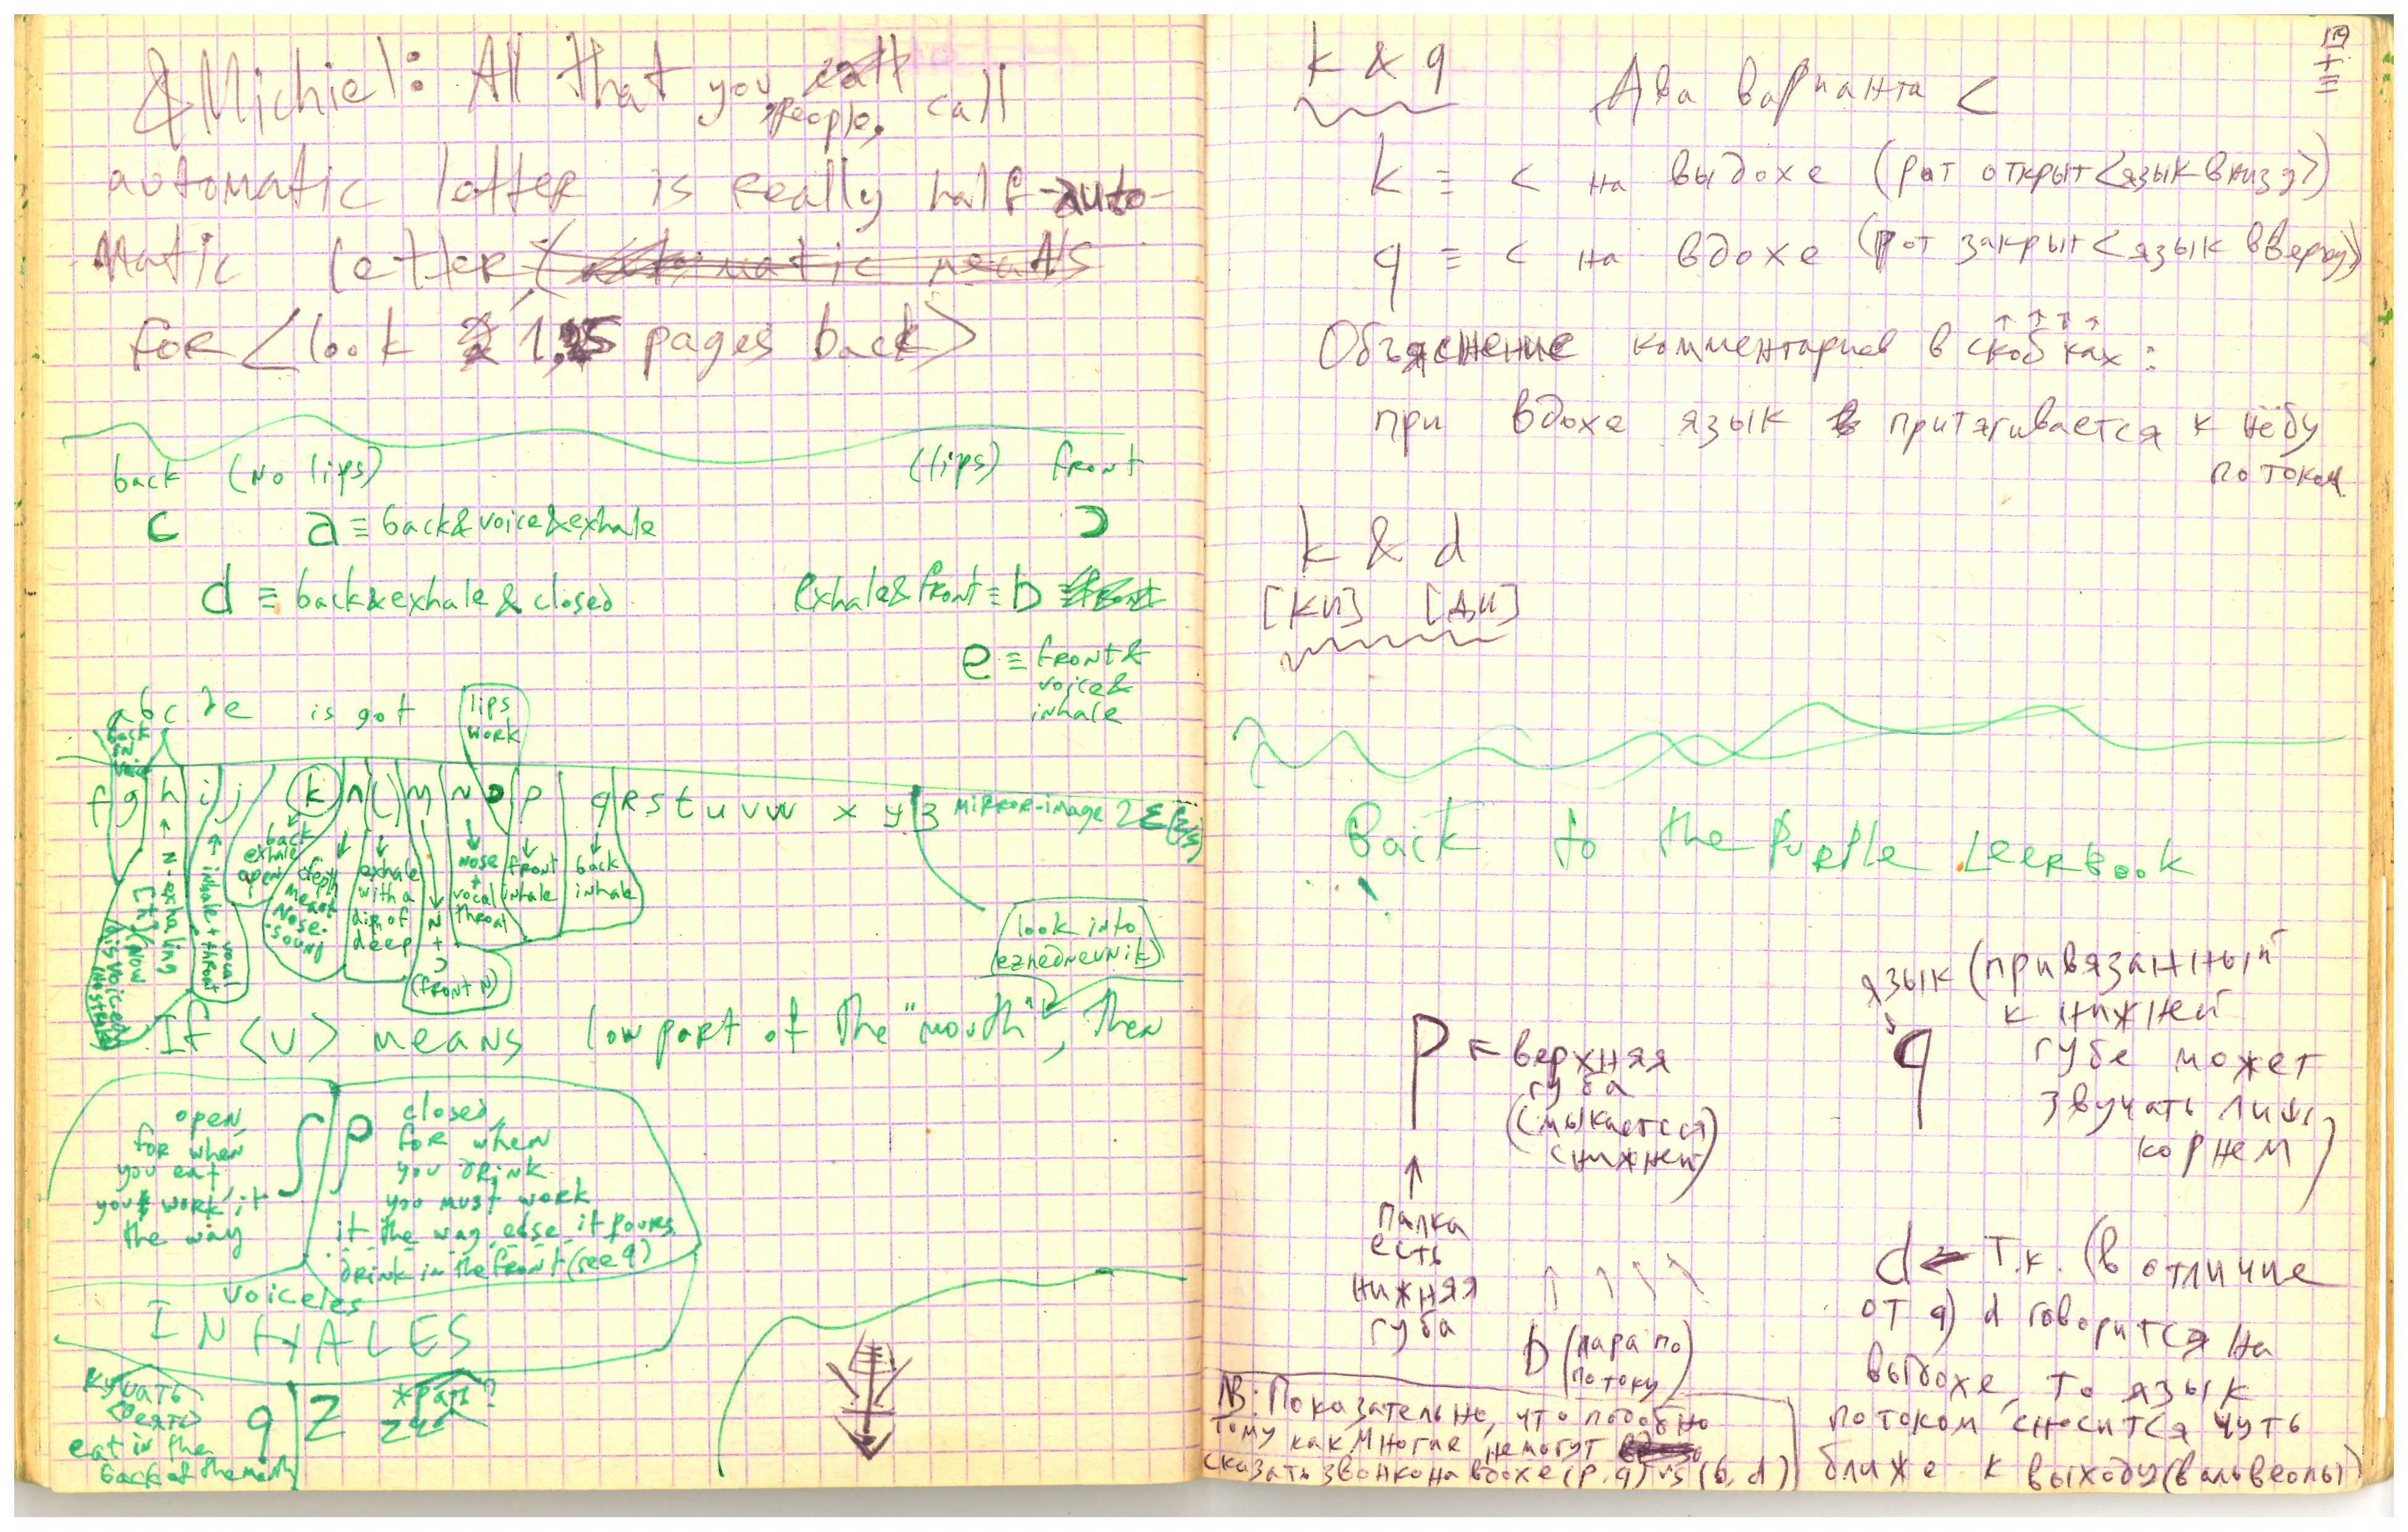 &Michiel: All that you
people, call
automatic letter is really half-auto-
matic letter
for <look 1,5 pages back>
back (no lips)
(lips) front
c a ≡ back&voice&exhale
d ≡ back&exhale & closed
exhale&front ≡ b
e ≡ front&
voice&
inhale
abcde is got
lips
work
f g h i j k n l m N o p q R s t u v w x y z mirror-image
back
exhale
open
depth
meant
nose-
sound
exhale
with a
dim of
deep
N
+
(front N)
nose
+
vocal
throat
front
inhale
back
inhale
N-exhaling
inhale + throat
vocal
look into
ezhednevnik
If <u> means low part of the "mouth", then
open,
for when
you eat
work it
the way
closed,
for when
you drink
you must work
it the way, else it pours
drink in the front (see q)
voiceles
INHALES
кушать
eat in the
back of the mouth
q z
k & q Два варианта c
k ≡ c на выдохе (рот открыт <язык внизу>)
q ≡ c на вдохе (рот закрыт <язык вверху>)
Объяснение комментариев в скобках:
при вдохе язык притягивается к нёбу
потоком
k & d
[ки] [ди]
Back to the Purple Leerbook
p ← верхняя
губа
(смыкается
с нижней)
↑
палка
есть
нижняя
губа
b (пара по
потоку)
язык (привязанный
к нижней
губе может
звучать лишь
корнем)
q
d ← т.к. (в отличие
от q) d говорится на
выдохе, то язык
потоком сносится чуть
ближе к выходу (в альвеолы)
NB: Показательно, что подобно
тому как многие не могут
сказать звонко на вдохе (p, q) vs (b, d)